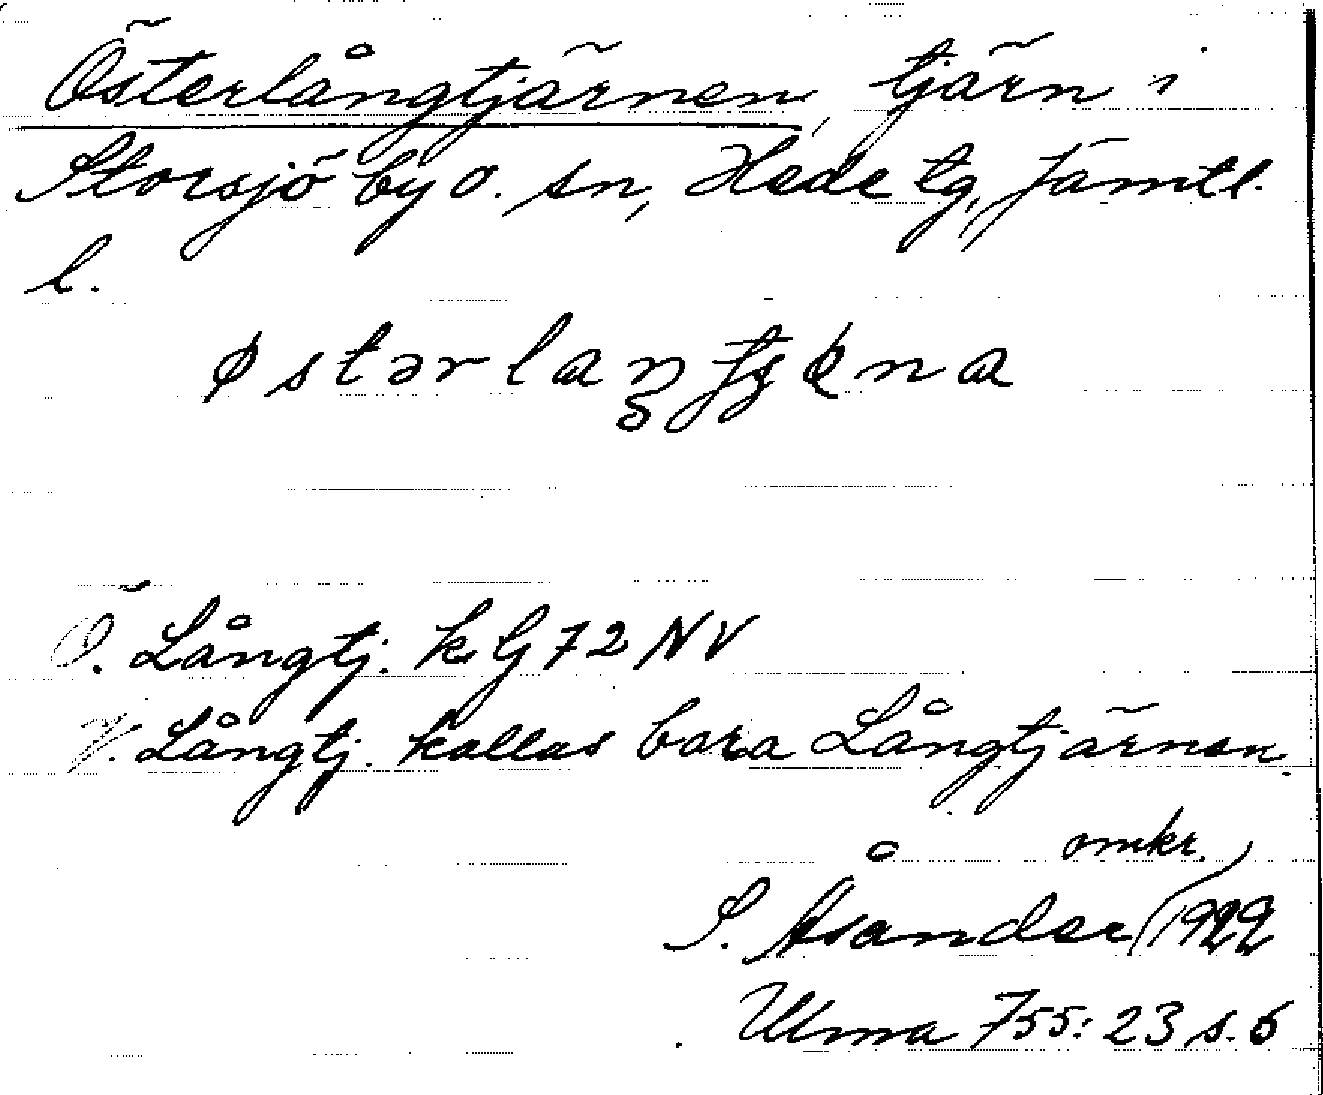 Österlångtjärnen, tjärn i
Storsjö by o. sn, Hede tg, Jämtl.
l.
østərlaŋ
Ö. Långtj. k. G 72 NV
V. Långtj. kallas bara Långtjärnen.
omkr.
S. Åsander 1922
Ulma 755: 23 s. 6